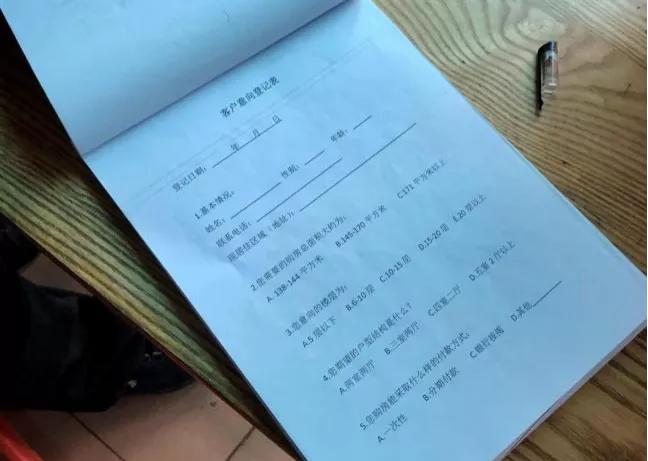 客户意向登记表
登记日期：____年____月____日
1.基本情况：
姓名：________ 性别：____ 年龄：____
联系电话：____________
现居住区域（地址）：____________
2.您需要的购房总面积大约为：
A.138-144平方米 B.145-170平方米 C.171平方米以上
3.您意向的楼层为：
A.5层以下 B.6-10层 C.10-15层 D.15-20层 E.20层以上
4.您期望的户型结构是什么？
A.两室两厅 B.三室两厅 C.四室二厅 D.五室2厅以上
5.您购房能采取什么样的付款方式：
A.一次性 B.分期付款 C.银行按揭 D.其他______